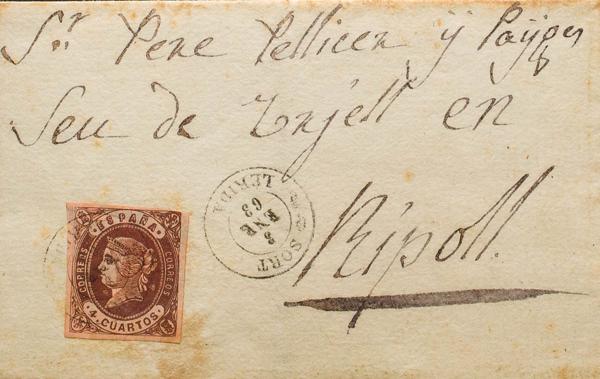 Sr. Pere Pellicer ÿ Payges
Seu de Urjell en
Ripoll.
SORT
3
ENE
63
LERIDA
ESPAÑA
CORREOS
CORREOS
4. CUARTOS